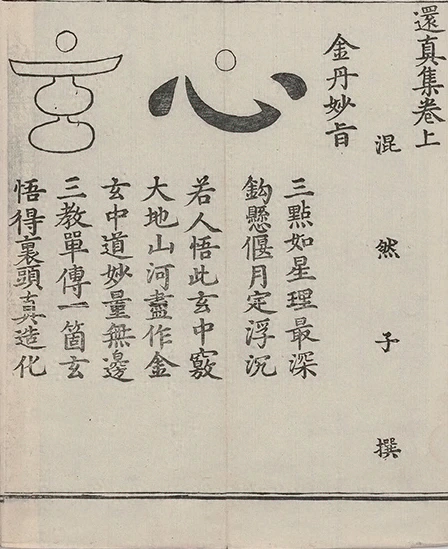 還真集卷上
混然子撰
金丹妙旨
心
三點如星理最深
鈎懸偃月定浮沉
若人悟此玄中竅
大地山河盡作金
玄
玄中道妙量無邊
三教單傳一箇玄
悟得裏頭真造化